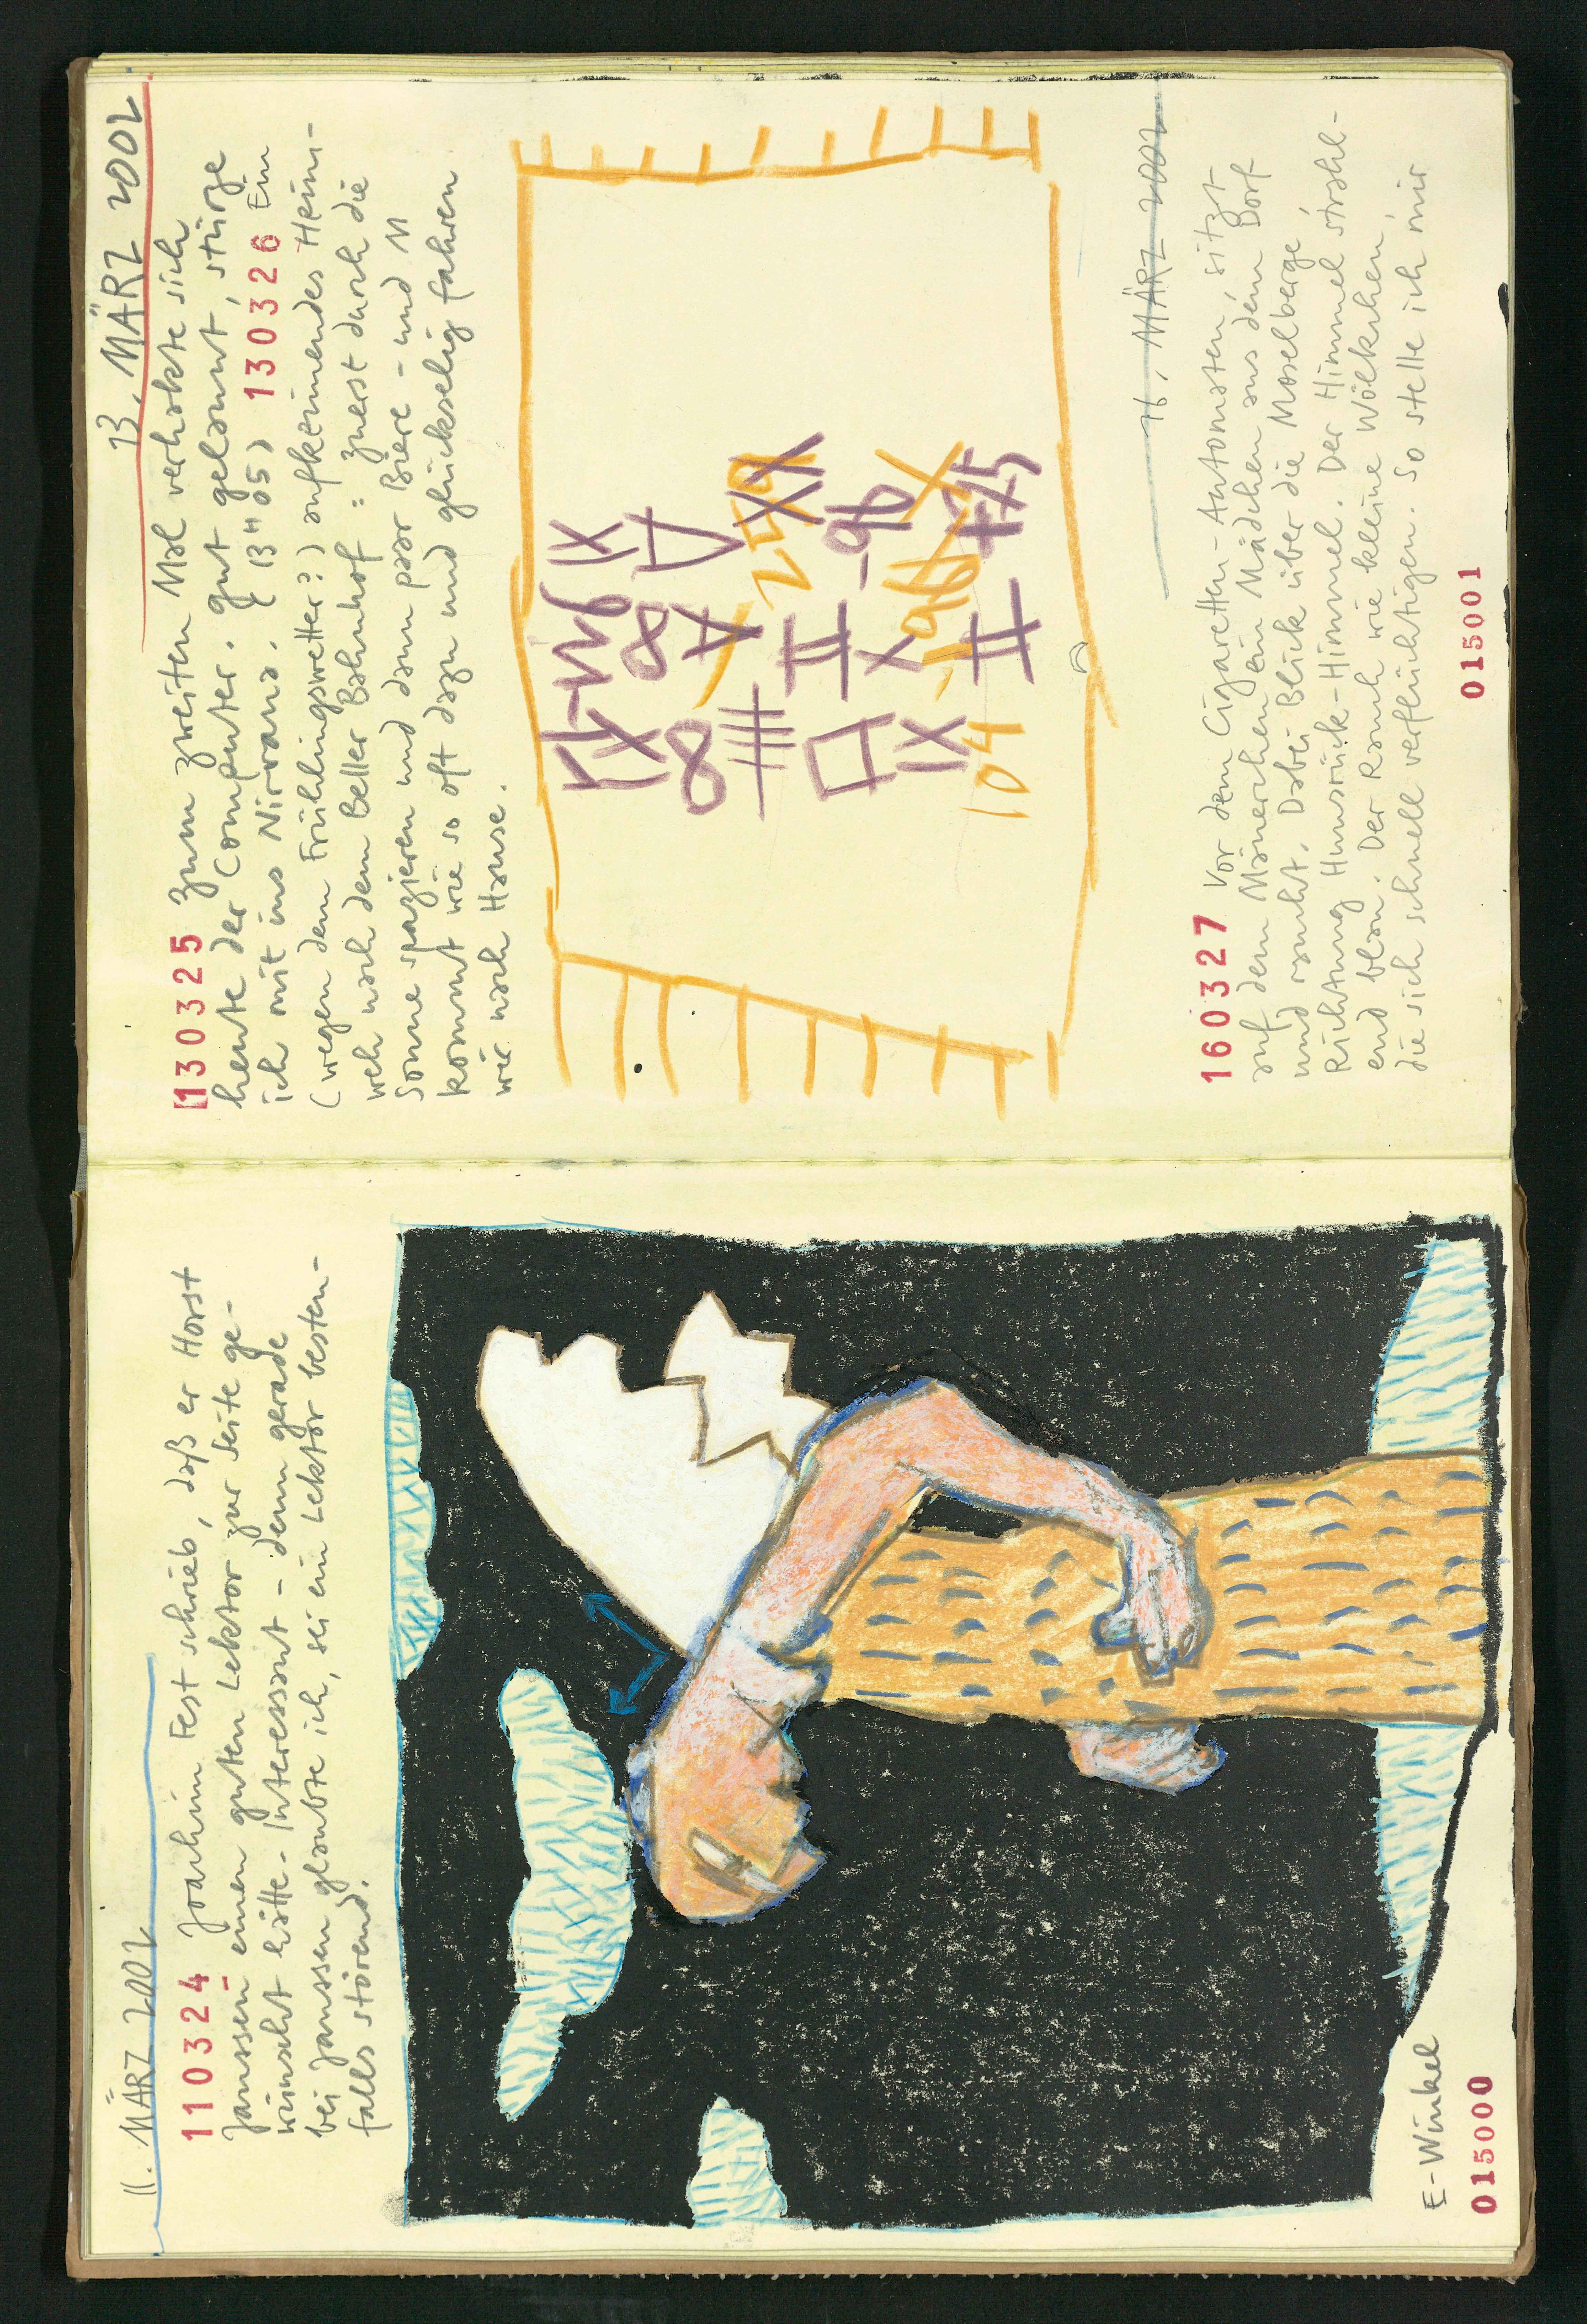 11. MÄRZ 2002
110324 Joachim Fest schrieb, daß er Horst
Janssen einen guten Lektor zur Seite ge-
wünscht hätte. Interessant - denn gerade
bei Janssen glaubte ich, sei ein Lektor besten-
falls störend.
E-Winkel
015000
13. MÄRZ 2002
130325 Zum zweiten Mal verhakte sich
heute der Computer. gut gelaunt, stürze
ich mit ins Nirvana. (13H05) 130326 Ein
(wegen dem Frühlingswetter?) aufkeimendes Heim-
weh nach dem Beller Bahnhof: zuerst durch die
Sonne spazieren und dann paar Biere - und M
kommt wie so oft dazu und glückselig fahren
wir nach Hause.
104
16. MÄRZ 2002
160327 Vor dem Cigaretten-Automaten, sitzt
auf dem Mäuerchen ein Mädchen aus dem Dorf
und raucht. Dabei Blick über die Moselberge,
Richtung Hunsrück-Himmel. Der Himmel strahl-
end blau. Der Rauch wie kleine Wölkchen,
die sich schnell verflüchtigen. So stelle ich mir
015001